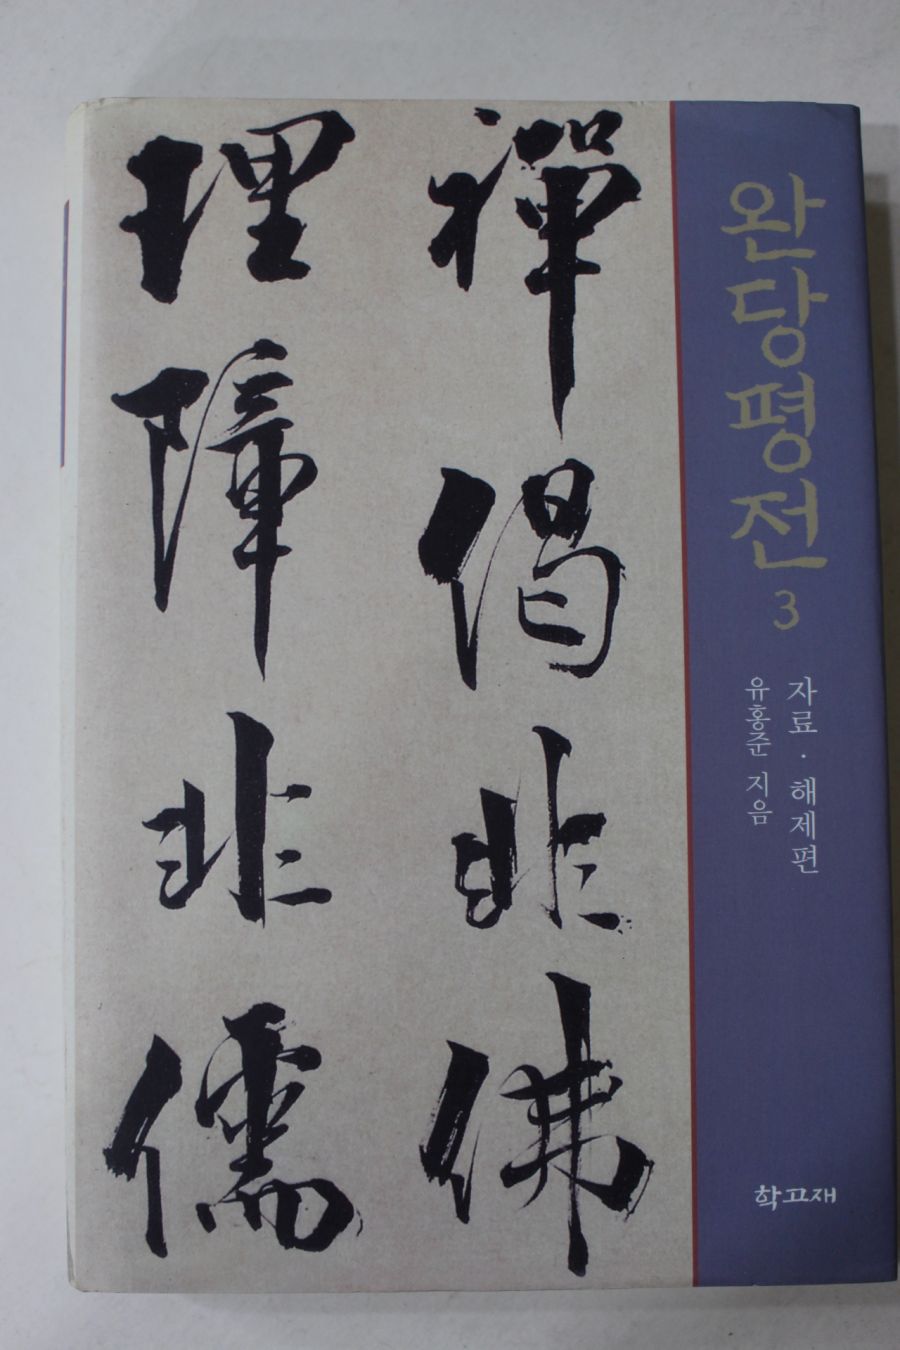 완당평전 3
자료·해제편
유홍준 지음
학고재
禪偈非佛
理障非儒